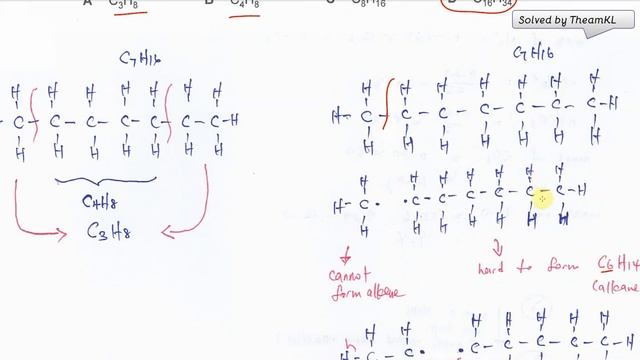 A C3H8 B C4H8 C C8H16 D C16H34
Solved by TheamKL
C7H16
H H H H H H H
C - C - C - C - C - C - C - H
H H H H H H H
C4H8
C3H8
C7H16
H H H H H H H
H - C - C - C - C - C - C - C - H
H H H H H H H
H H H H H H
H - C • • C - C - C - C - C - C - H
H H H H H H
cannot
form alkene
hard to form C6H14
(alkane
H H H H H H H
H - C - C • • C - C - C - C - C - H